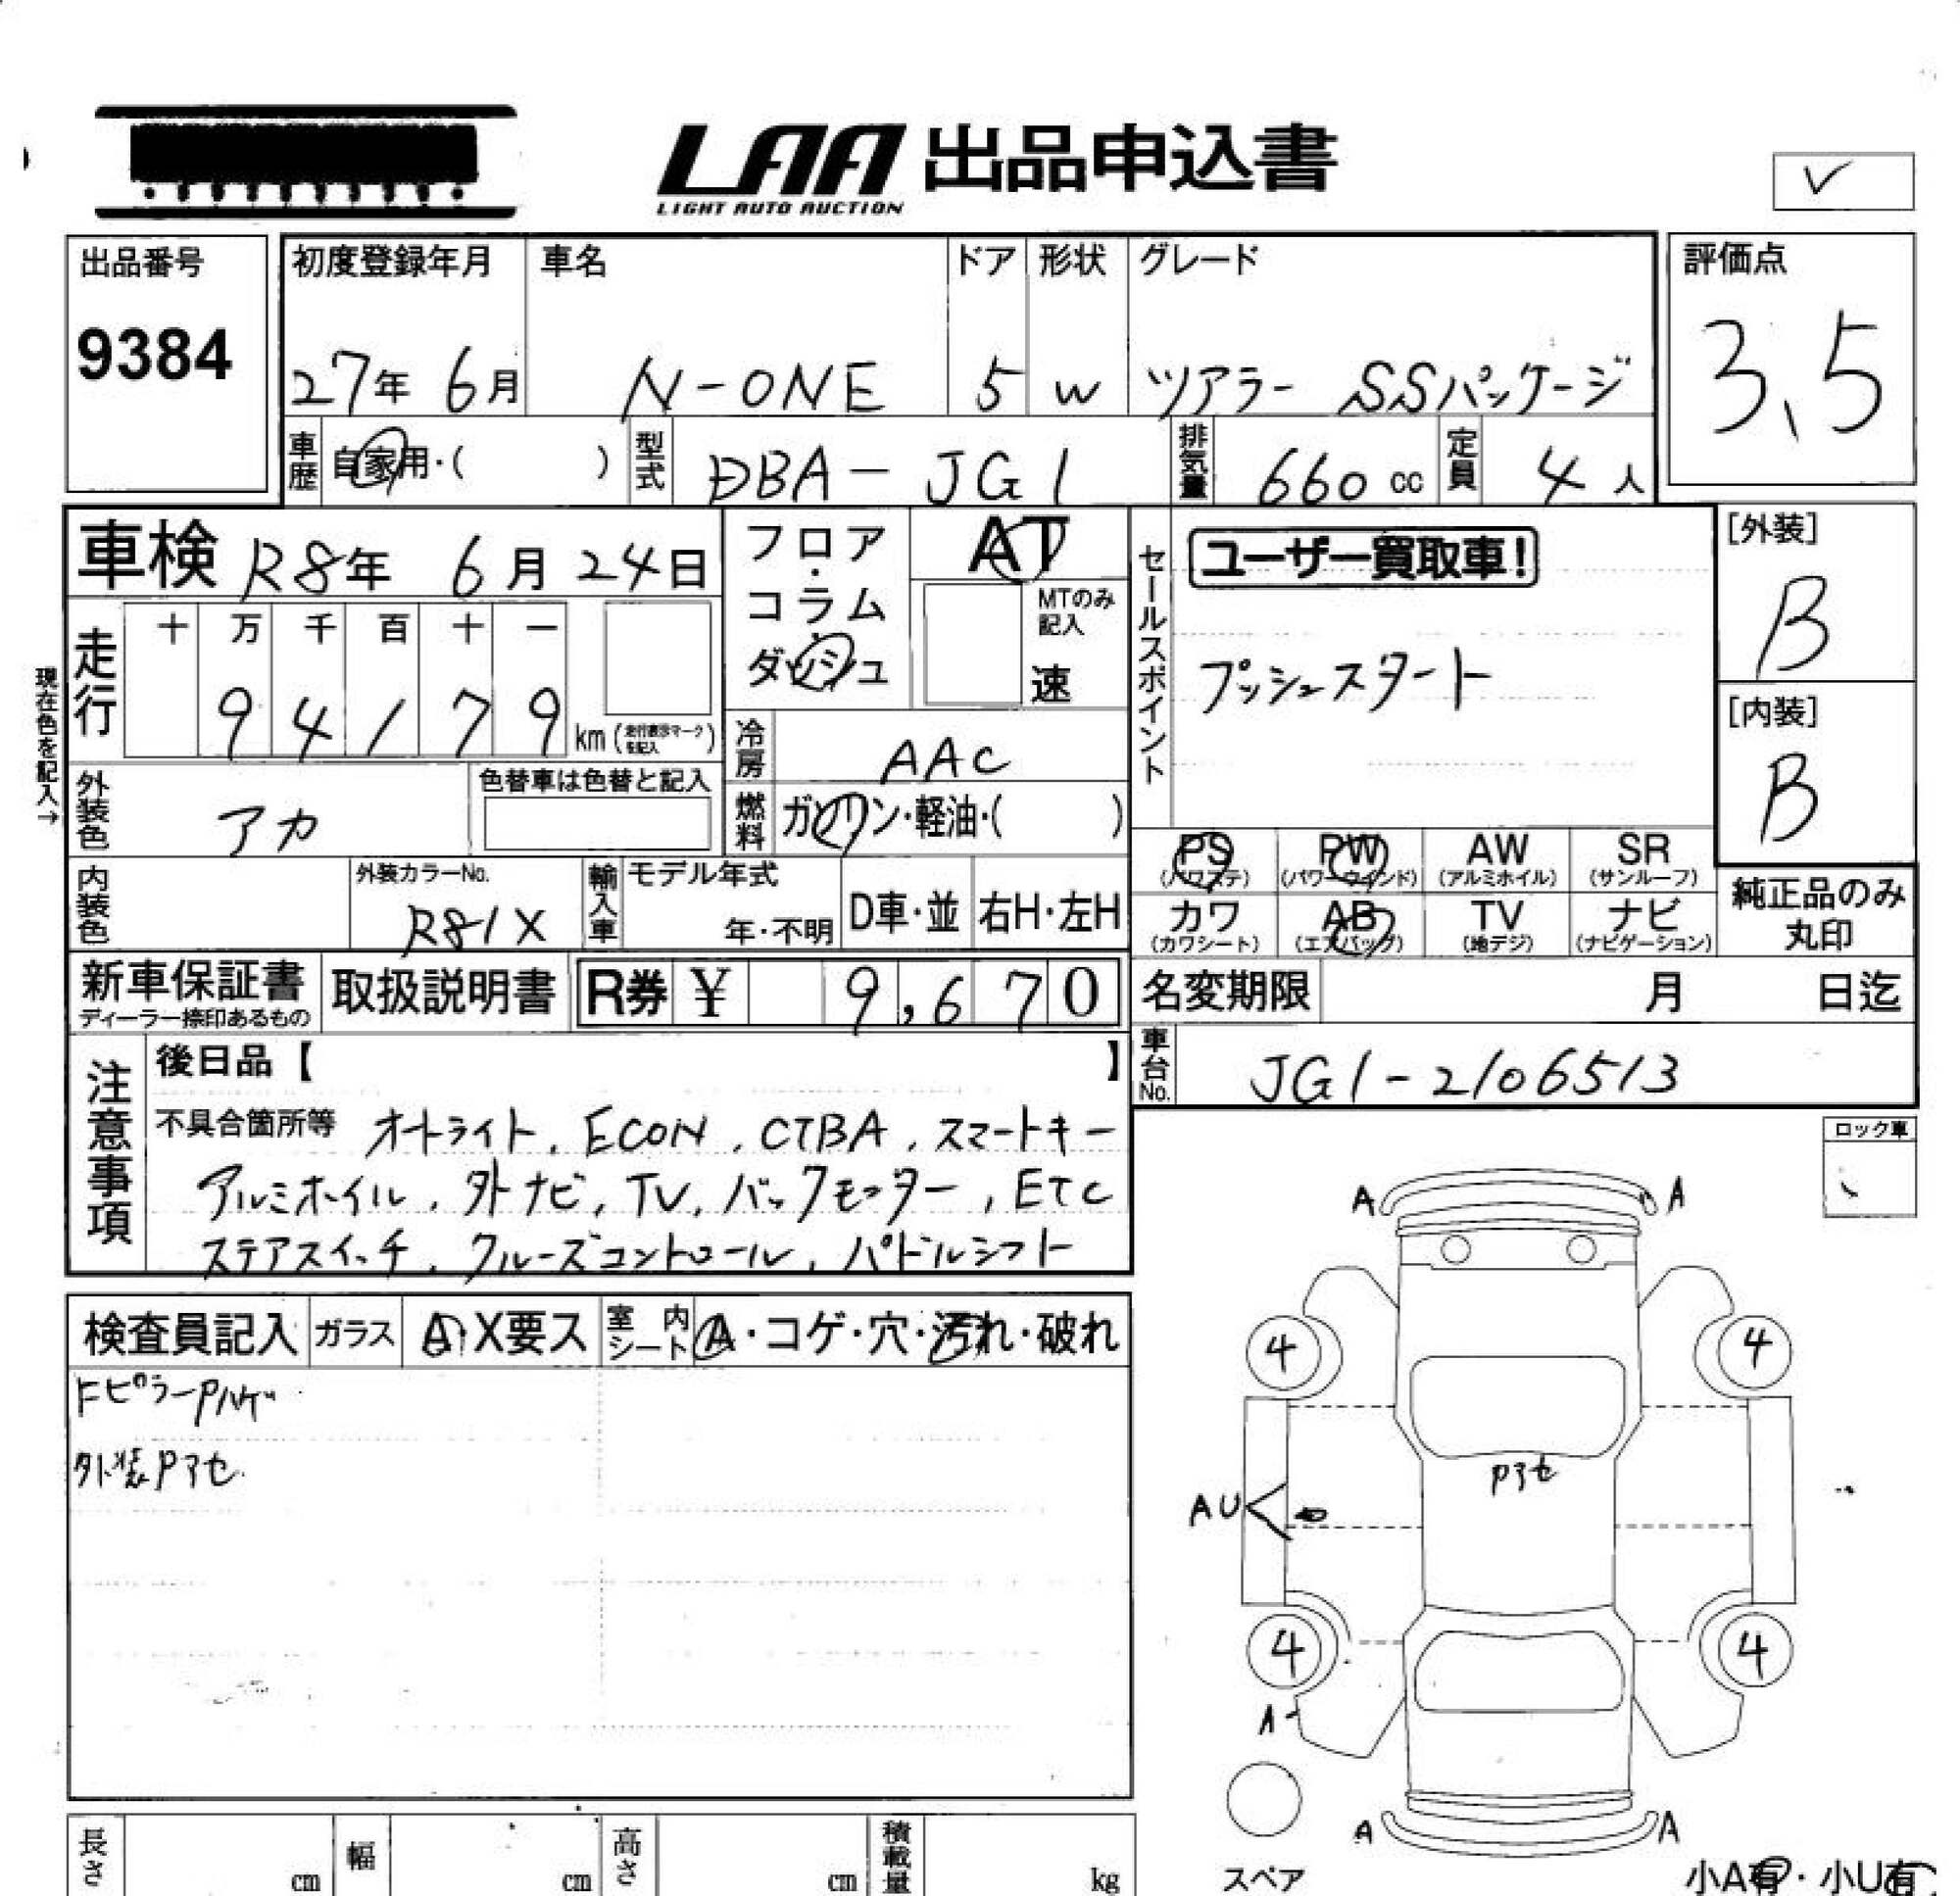 LAA 出品申込書
LIGHT AUTO AUCTION
出品番号
9384
初度登録年月
27年 6月
車名
N-ONE
ドア
5
形状
W
グレード
ツアラー SSパッケージ
評価点
3.5
車歴 自家用・( )
型式 DBA-JG1
排気量 660 cc
定員 4人
車検 R8年 6月 24日
フロア・コラム・ダッシュ
AT
MTのみ記入
速
セールスポイント
ユーザー買取車!
プッシュスタート
[外装]
B
[内装]
B
現在色を記入→
走行
十 万 千 百 十 一
9 4 1 7 9 km (走行表示マークを記入)
冷房 AAC
燃料 ガソリン・軽油・( )
外装色 アカ
色替車は色替と記入
内装色
外装カラーNo.
R81X
輸入車
モデル年式
年・不明
D車・並
右H・左H
PS (パワステ)
PW (パワーウインド)
AW (アルミホイル)
SR (サンルーフ)
カワ (カワシート)
AB (エアバッグ)
TV (地デジ)
ナビ (ナビゲーション)
純正品のみ丸印
新車保証書
ディーラー捺印あるもの
取扱説明書
R券 ¥ 9,670
名変期限 月 日迄
車台No. JG1-2106513
注意事項
後日品【 】
不具合箇所等 オートライト, ECON, CTBA, スマートキー
アルミホイル, 外ナビ, TV, バックモニター, ETC
ステアスイッチ, クルーズコントロール, パドルシフト
ロック車
検査員記入
ガラス A・X要ス
室内シート A・コゲ・穴・汚れ・破れ
FピラーPハゲ
外装Pアセ
A A
4 4
Pアセ
AU
4 4
A
A A
スペア
小A有・小U有
長さ cm
幅 cm
高さ cm
積載量 kg